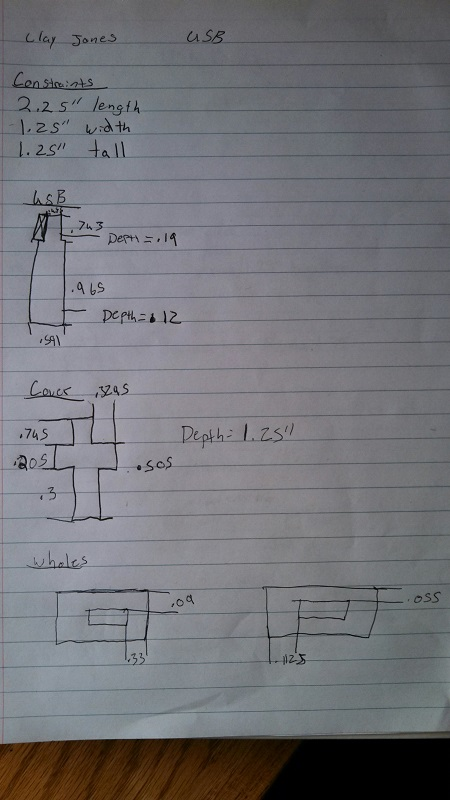 Clay Jones USB
Constraints
2.25" length
1.25" width
1.25" tall
USB
.743
Depth = .19
.965
Depth = .12
.591
Cover .3295
.745
Depth = 1.25"
.205
.505
.3
Wholes
.09
.055
.33
.1125